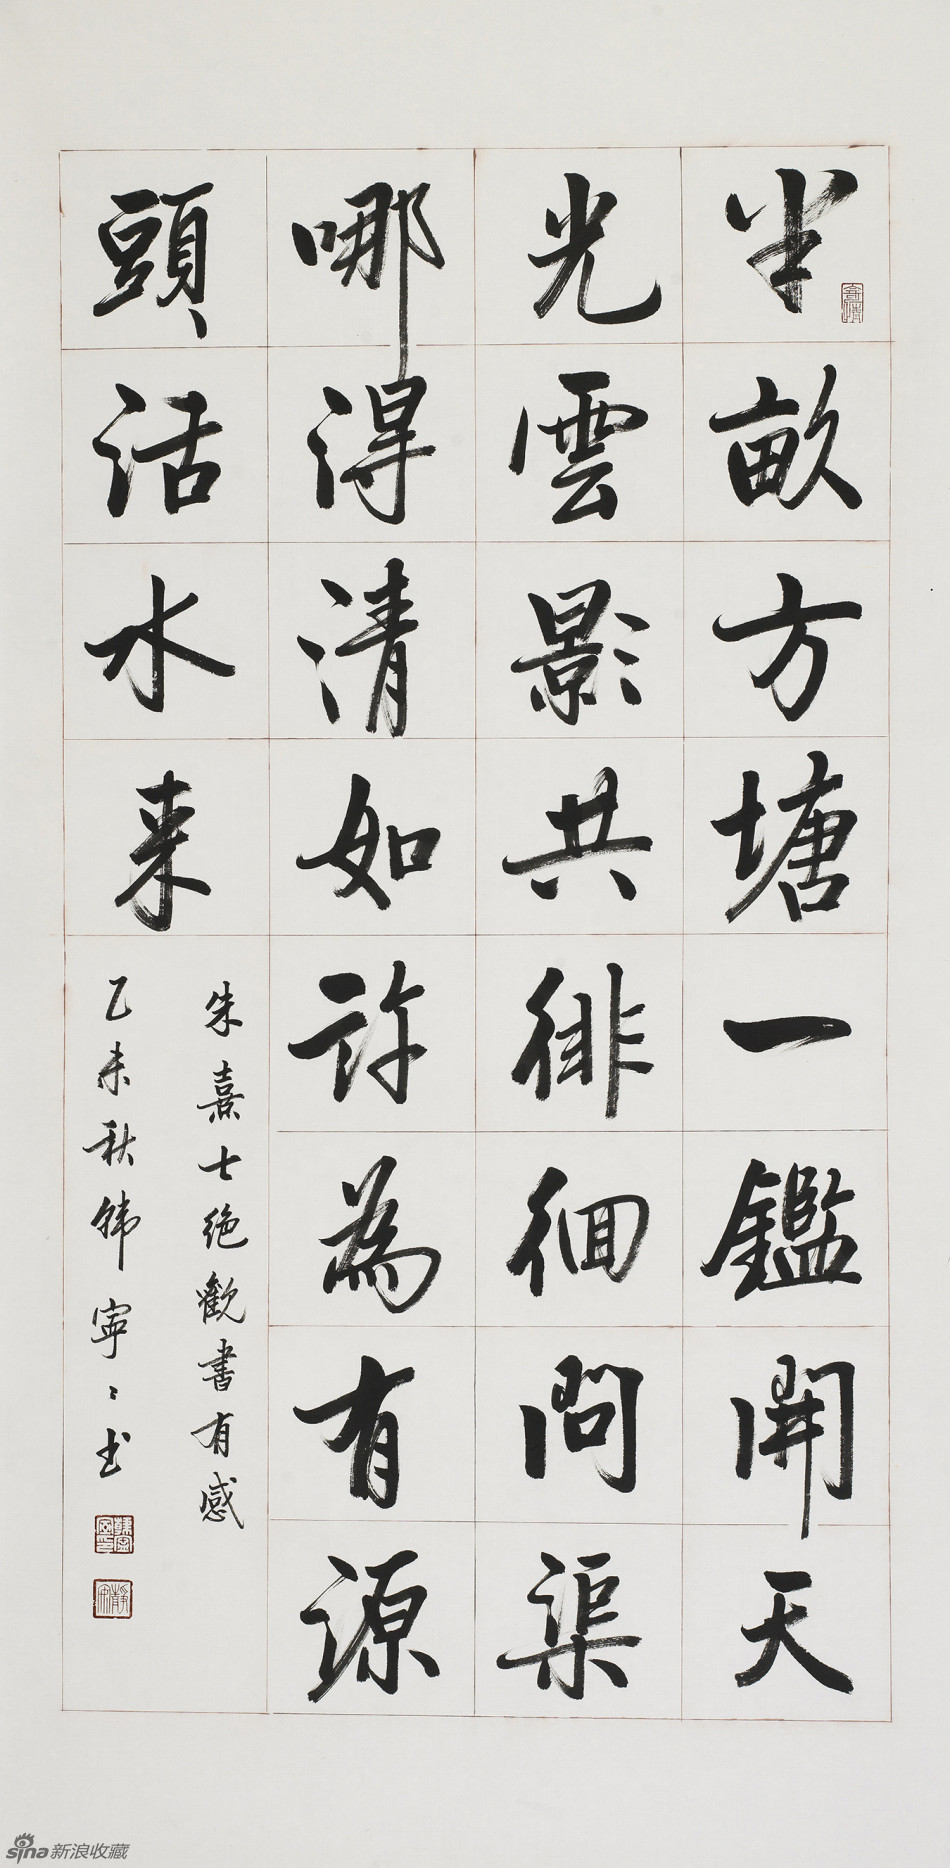 半畝方塘一鑑開天
光雲影共徘徊問渠
哪得清如許為有源
頭活水来
朱熹七绝觀書有感
乙未秋韩寧〻书
sina新浪收藏